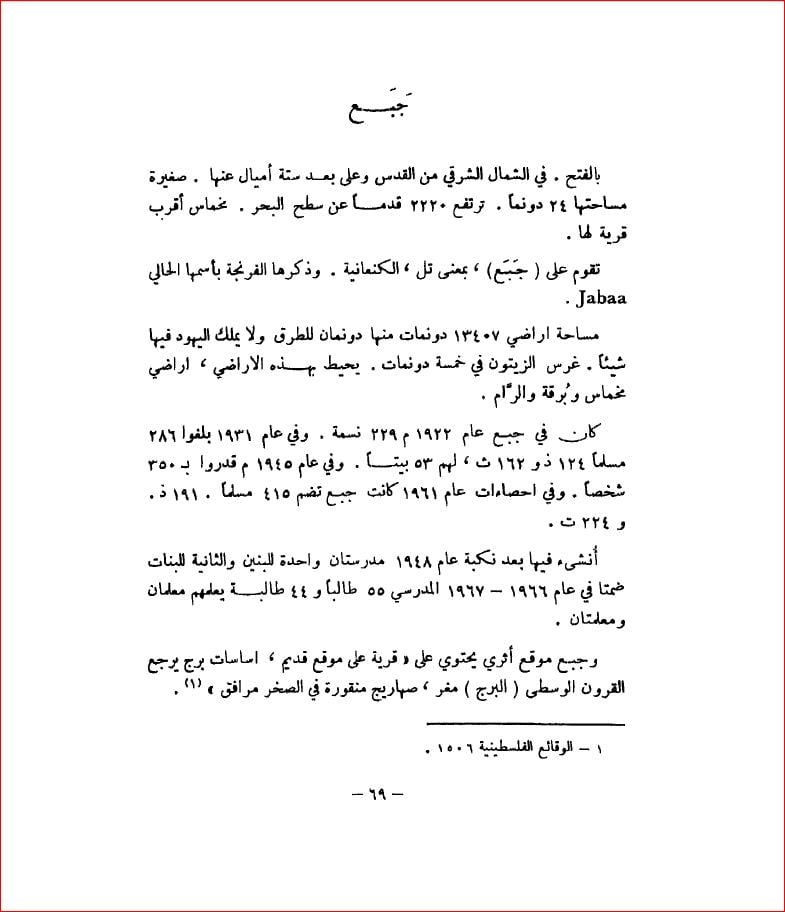 جَبَـــع
بالفتح . في الشمال الشرقي من القدس وعلى بعـد ستة أميال عنها . صغيرة
مساحتها ٢٤ دونماً . ترتفع ٢٢٢٠ قدمـــاً عن سطح البحر . مخماس أقرب
قرية لها .
تقوم على ( جَبَع ) ، بمعنى تل ، الكنعانية . وذكرها الفرنجة بأسمها الحالي
Jabaa .
مساحة اراضي ١٣٤٠٧ دونمات منها دونمان للطرق ولا يملك اليهود فيها
شيئاً . غرس الزيتون في خمسة دونمات . يحيط بهـــذه الاراضي ، اراضي
مخماس وبُرقة والرَّام .
كان في جبع عام ١٩٢٢ م ٢٢٩ نسمة . وفي عام ١٩٣١ بلغوا ٢٨٦
مسلماً ١٢٤ ذ و ١٦٢ ث ، لهم ٥٣ بيتـــاً . وفي عام ١٩٤٥ م قدروا بـ ٣٥٠
شخصاً . وفي احصاءات عام ١٩٦١ كانت جبع تضم ٤١٥ مسلماً . ١٩١ ذ .
و ٢٢٤ ت .
أُنشىء فيها بعد نكبة عام ١٩٤٨ مدرستان واحدة للبنين والثانية للبنات
ضمتا في عام ١٩٦٦ – ١٩٦٧ المدرسي ٥٥ طالباً و ٤٤ طالبـــة يعلمهم معلمان
ومعلمتان .
وجبع موقع أثري يحتوي على « قرية على موقع قديم ، اساسات برج يرجع
القرون الوسطى ( البرج ) مغر ، صهاريج منقورة في الصخر مرافق » (١) .
١ – الوقائع الفلسطينية ١٥٠٦ .
– ٦٩ –